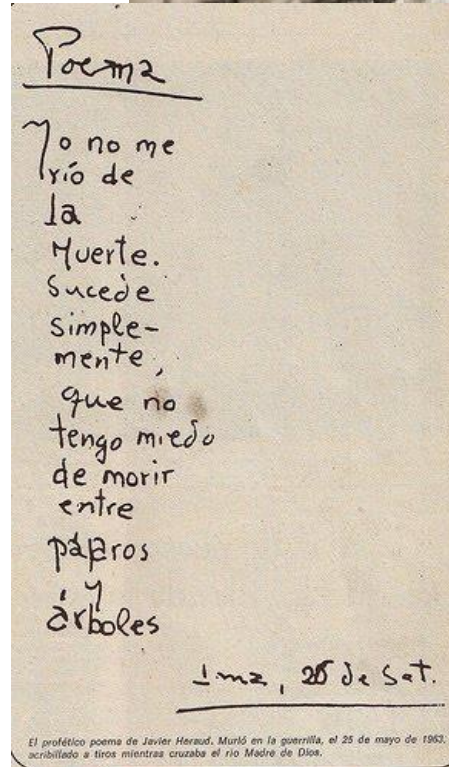 Poema
Yo no me
río de
la
Muerte.
Sucede
simple-
mente,
que no
tengo miedo
de morir
entre
pájaros
y
árboles
de Set.
El profético poema de Javier Heraud. Murió en la guerrilla, el 25 de mayo de 1963,
acribillado a tiros mientras cruzaba el río Madre de Dios.